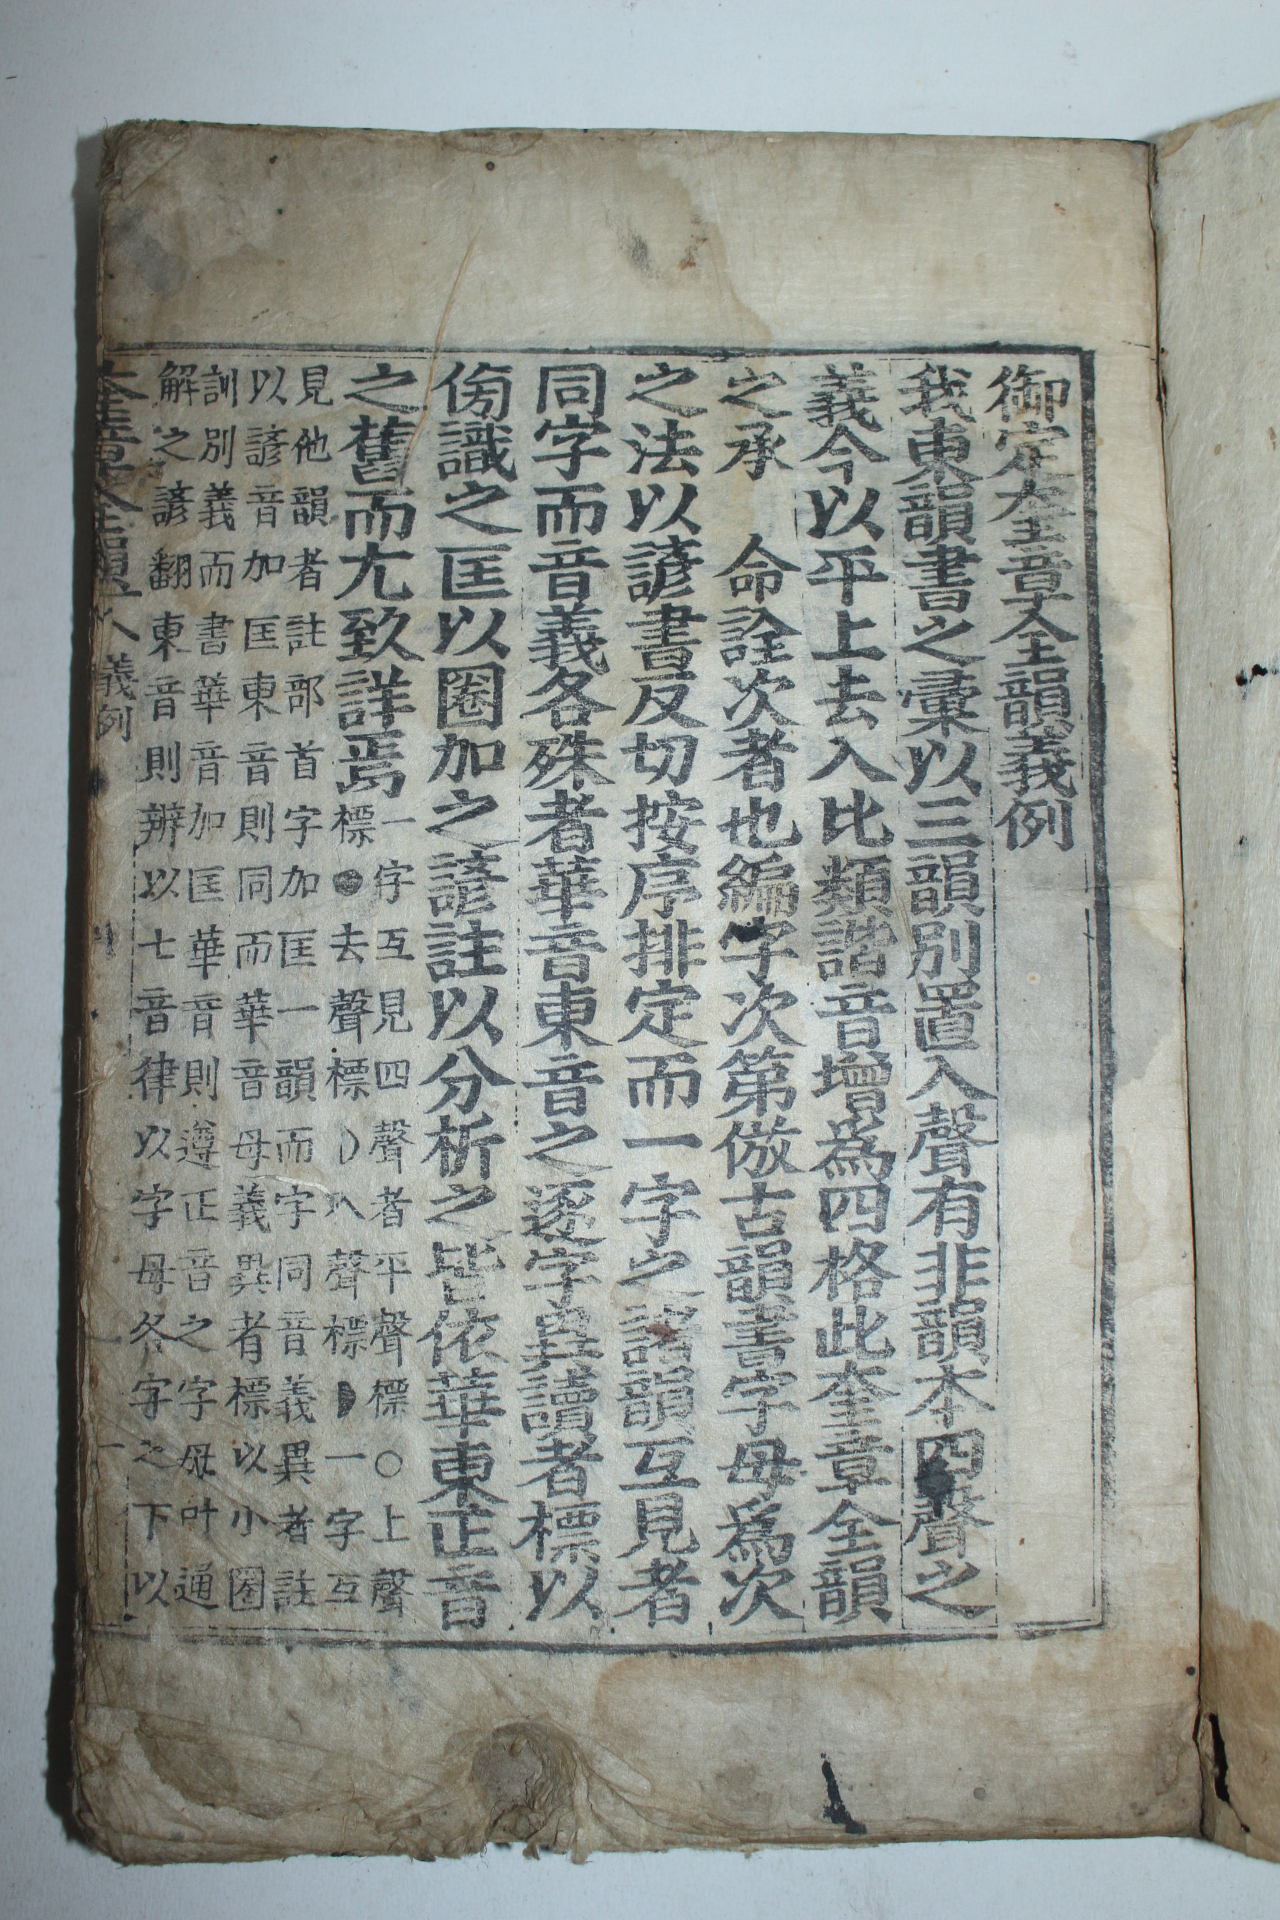 御定奎章全韻義例
我東韻書之彙以三韻別置入聲有非韻本四聲之
義今以平上去入比類諧音增爲四格此奎章全韻
之承 命詮次者也編字次第倣古韻書字母爲次
之法以諺書反切按序排定而一字之諸韻互見者
同字而音義各殊者華音東音之逐字異讀者標以
傍識之匡以圈加之諺註以分析之皆依華東正音
之舊而尤致詳焉
一字互見四聲者平聲標○上聲
標●去聲標☽入聲標◗一字互
見他韻者註部首字加匡一韻而字同音義異者註
以諺音加匡東音則同而華音母義異者標以小圈
訓別義而書華音加匡華音則遵正音之字母叶通
解之諺翻東音則辨以七音律以字母各字之下以
奎章全韻 義例
一